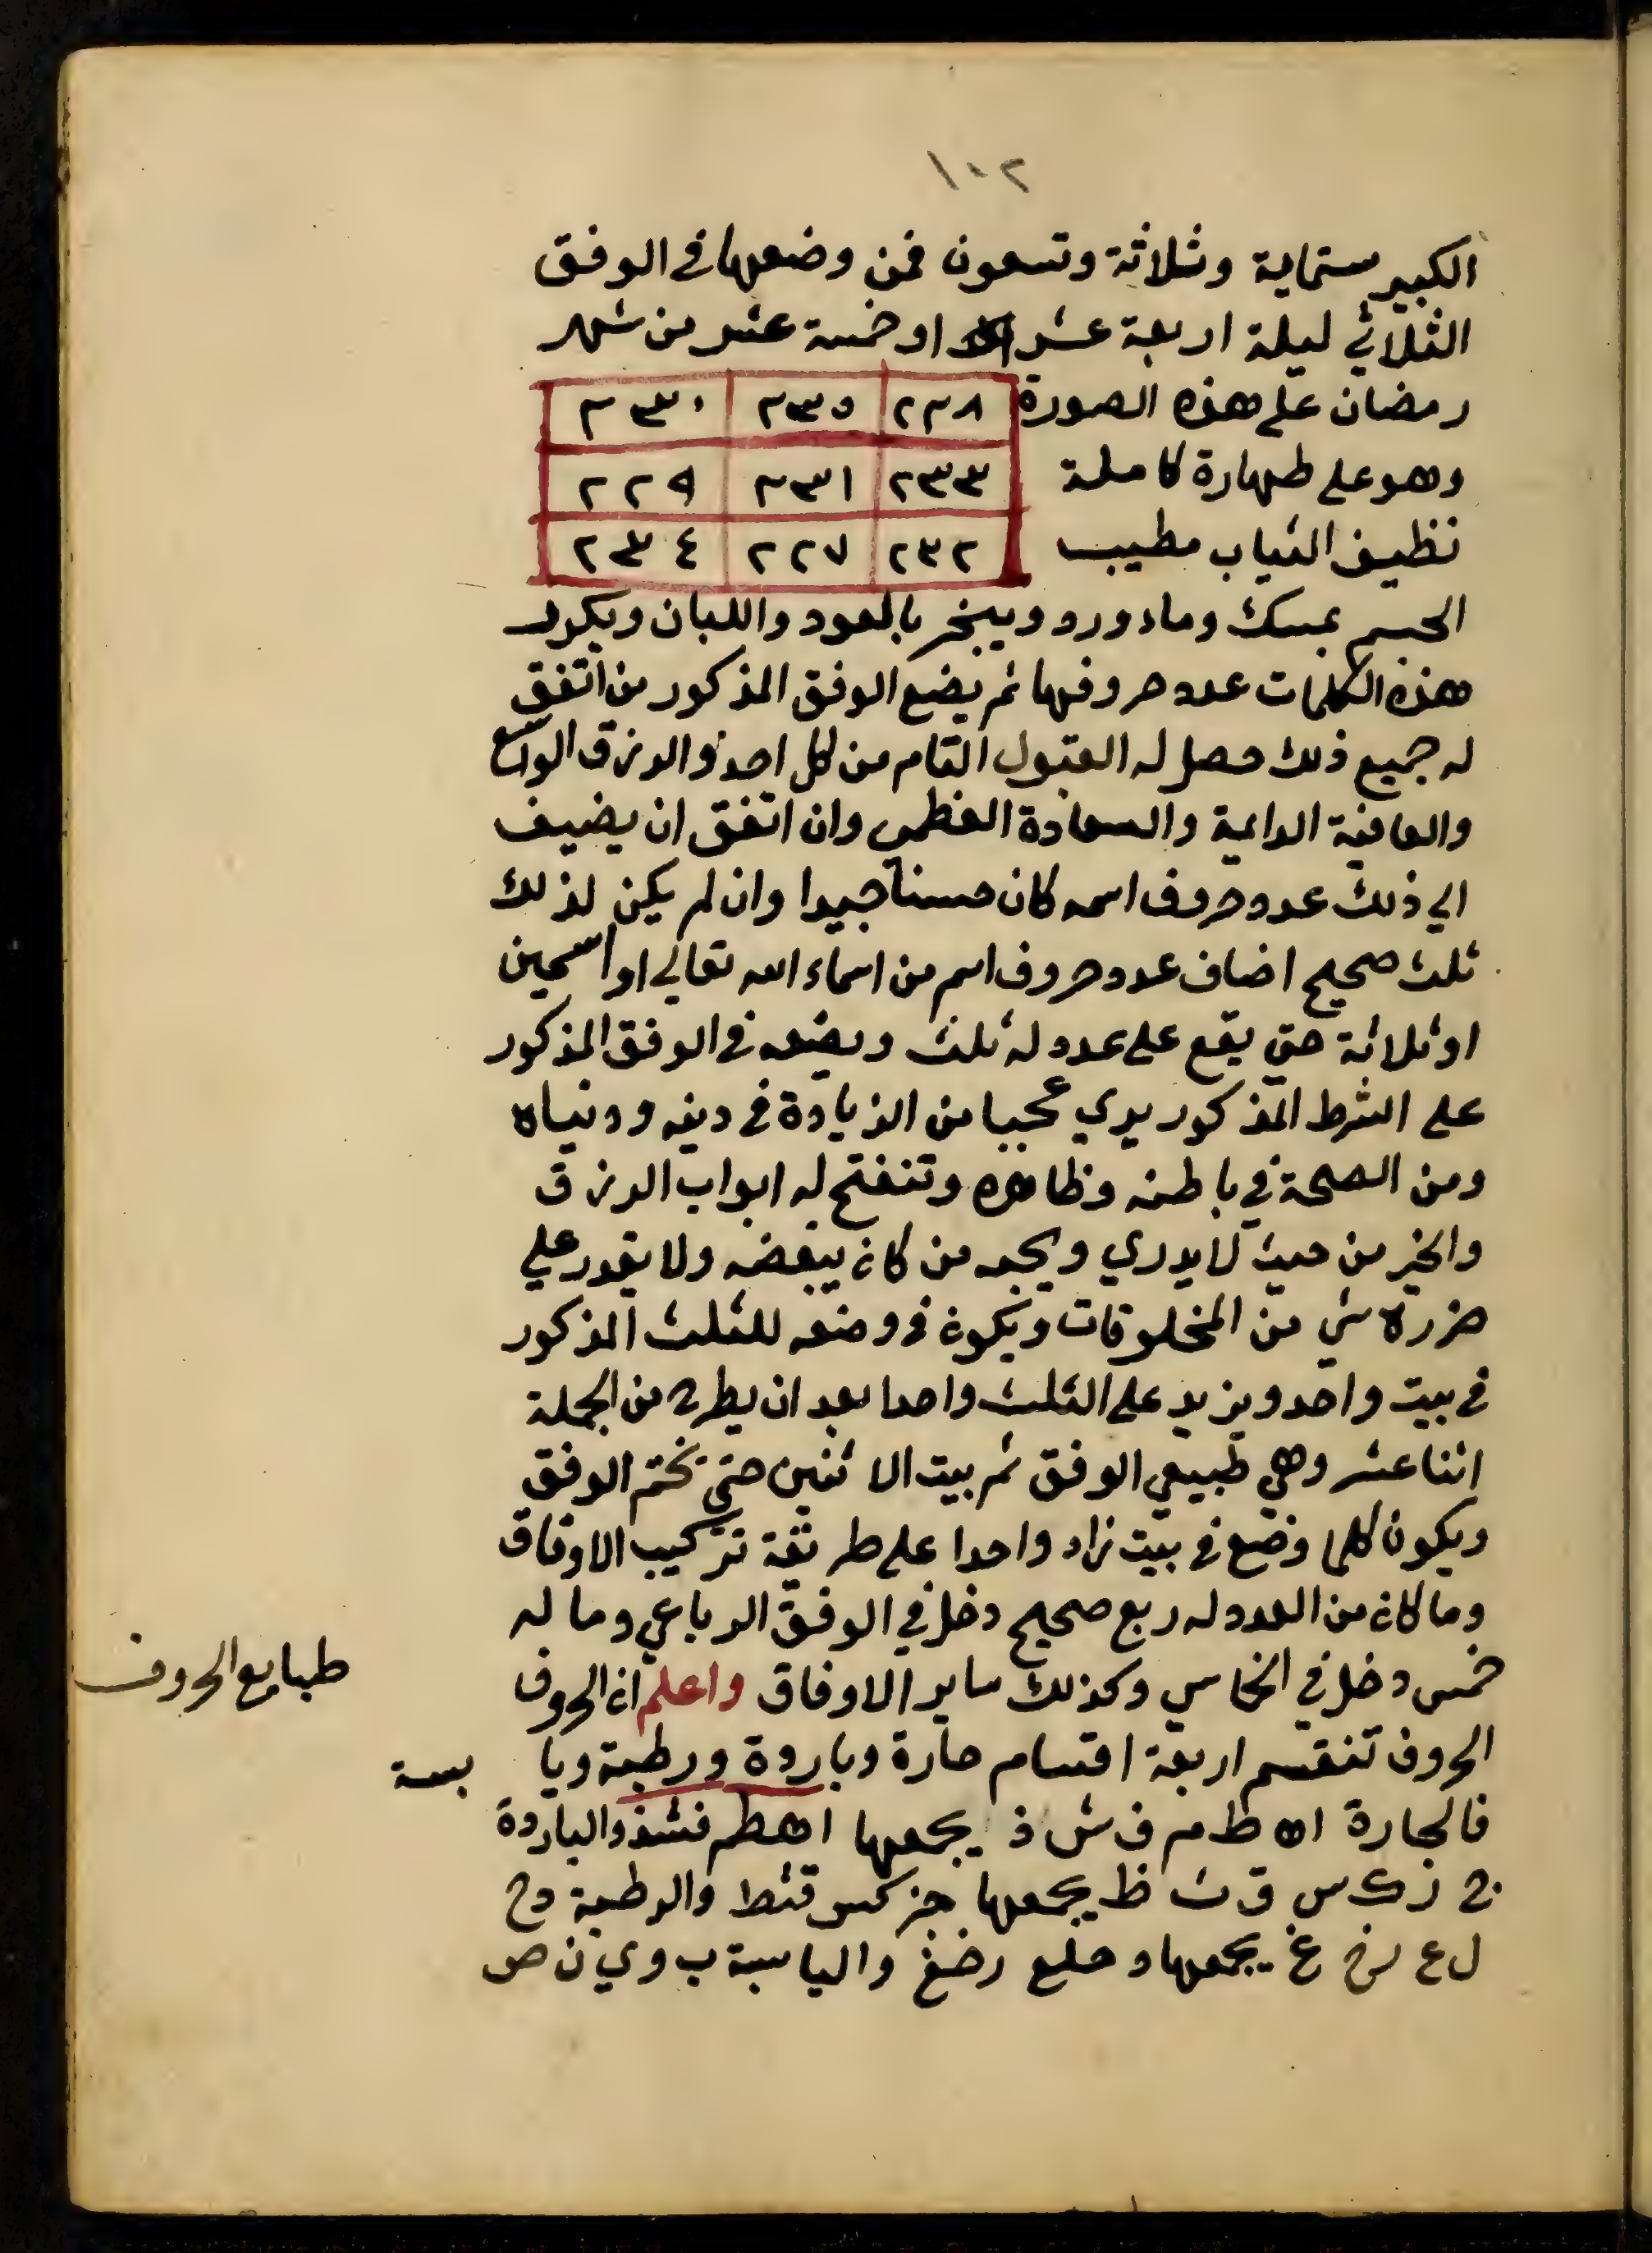 ١٠٢
الكبير ستماية وثلاثة وتسعون فمن وضعها في الوفق
الثلاثي ليلة اربعة عشر او خمسة عشر من شهر
رمضان على هذه الصورة ٢٢٨ ٢٣٥ ٢٣٠
وهو على طهارة كاملة ٢٣٣ ٢٣١ ٢٢٩
نظيف الثياب مطيب ٢٣٢ ٢٢٧ ٢٣٤
الجسم بمسك وماء ورد ويبخر بالعود واللبان ويكرر
هذه الكلمات عدد حروفها ثم يضع الوفق المذكور من اتفق
له جميع ذلك حصل له القبول التام من كل احد والرزق الواسع
والعافية الدايمة والسعادة العظمي وان اتفق ان يضيف
الي ذلك عدد حروف اسمه كان حسنا جيدا وان لم يكن لذلك
ثلث صحيح اضاف عدد حروف اسم من اسماء الله تعالي او اسمين
او ثلاثة حتي يقع على عدد له ثلث ويضعه في الوفق المذكور
على الشرط المذكور يري عجبا من الزيادة في دينه ودنياه
ومن الصحة في باطنه وظاهره وتنفتح له ابواب الرزق
والخير من حيث لا يدري ويحبه من كان يبغضه ولا يقدر علي
ضرره شي من المخلوقات ويكون في وضعه للثلث المذكور
في بيت واحد ويزيد على الثلث واحدا بعد ان يطرح من الجملة
اثنا عشر وهي طبيعي الوفق ثم بيت الاثنين حتي تختم الوفق
ويكون كلما وضع في بيت زاد واحدا على طريقة تركيب الاوفاق
وما كان من العدد له ربع صحيح دخل في الوفق الرباعي وما له
خمس دخل في الخماسي وكذلك ساير الاوفاق واعلم ان الحروف
طبايع الحروف
الحروف تنقسم اربعة اقسام حارة وباردة ورطبة ويا بسة
فالحارة ا ه ط م ف ش ذ يجمعها اهطم فشذ والباردة
ج ز ك س ق ث ظ يجمعها جزكس قثظ والرطبة د ح
ل ع ر خ غ يجمعها دحلع رخغ واليابسة ب و ي ن ص